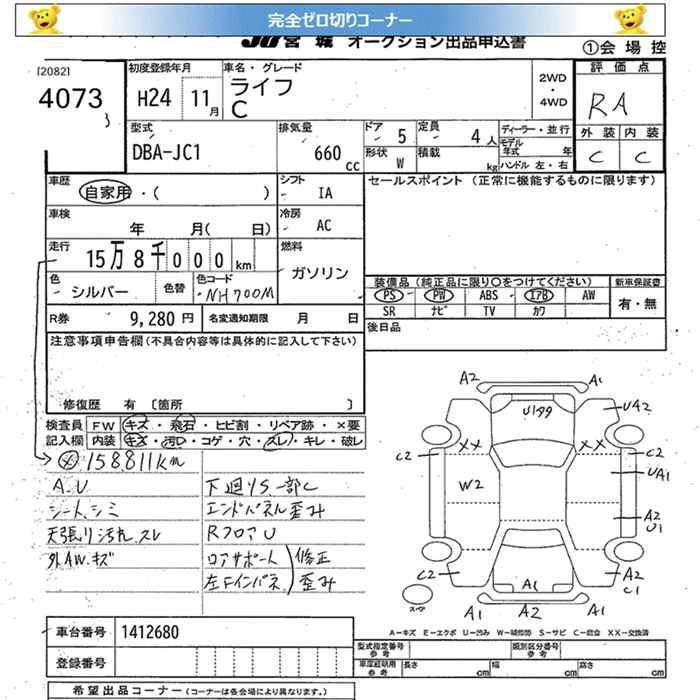 完全ゼロ切りコーナー
JU宮城 オークション出品申込書
①会 場 控
[2082]
4073
初度登録年月
H24 11月
車名・グレード
ライフ
C
2WD
・
4WD
評 価 点
RA
外 装 内 装
C C
型式
DBA-JC1
排気量
660 cc
ドア 5
定員 4人
形状 W
積載 kg
ディーラー・並行
モデル年式 年
ハンドル 左・右
車歴
自家用・( )
シフト
IA
セールスポイント (正常に機能するものに限ります)
車検
年 月( 日)
冷房
AC
走行
15万8千000km
燃料
ガソリン
色
シルバー
色替
色コード
NH700M
装備品 (純正品に限り○をつけてください)
新車保証書
PS PW ABS エアB AW
SR ナビ TV カワ
有・無
R券 9,280円
名変通知期限 月 日
後日品
注意事項申告欄(不具合内容等は具体的に記入して下さい)
修復歴 有 〔箇所 〕
検査員
記入欄
FW キズ・飛石・ヒビ割・リペア跡・×要
内装 キズ・汚D・コゲ・穴・スレ・キレ・破レ
※158,811km
A.U
シート.シミ
天張り汚れ.スレ
外AW.キズ
下廻りS.一部C
エンドパネル歪み
RフロアU
ロアサポート 修正
左Fインパネ 歪み
A2 A1
U1 UA2
XX XX
C2 C2
W2 UA1
A2
U1
C2 A1 A2
C1
スペア
A1 A2 A1
A-キズ E-エクボ U-凹み W-補修跡 S-サビ C-腐食 XX-交換済
車台番号 1412680
登録番号
型式指定番号
参考
類別区分番号
参考
車庫証明用
参考
長さ cm 幅 cm 高さ cm
希望出品コーナー (コーナーは各会場により異なります。)